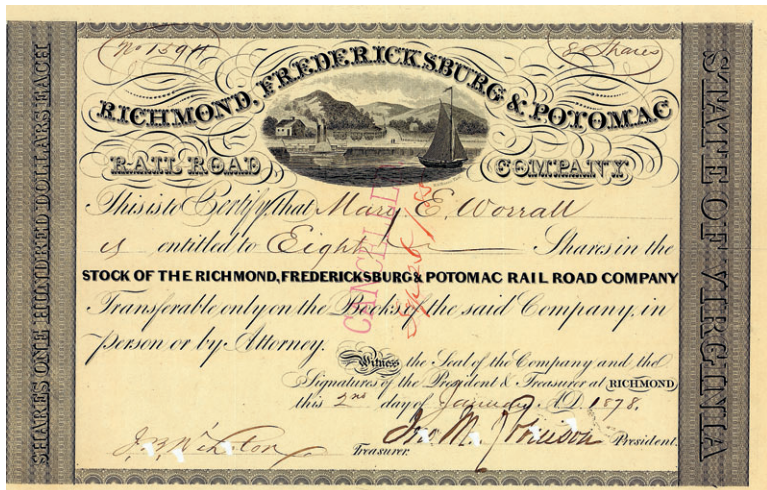 No 1594
8 Shares
RICHMOND, FREDERICKSBURG & POTOMAC
RAIL ROAD COMPANY
This is to Certify that Mary E. Worrall
is entitled to Eight Shares in the
STOCK OF THE RICHMOND, FREDERICKSBURG & POTOMAC RAIL ROAD COMPANY
Transferable only on the Books of the said Company, in
person or by Attorney.
Witness the Seal of the Company and the
Signatures of the President & Treasurer at RICHMOND
this 2nd day of January A.D. 1878.
J.B. Winston Treasurer.
Jno. M. Robinson President.
SHARES ONE HUNDRED DOLLARS EACH
STATE OF VIRGINIA
CANCELLED